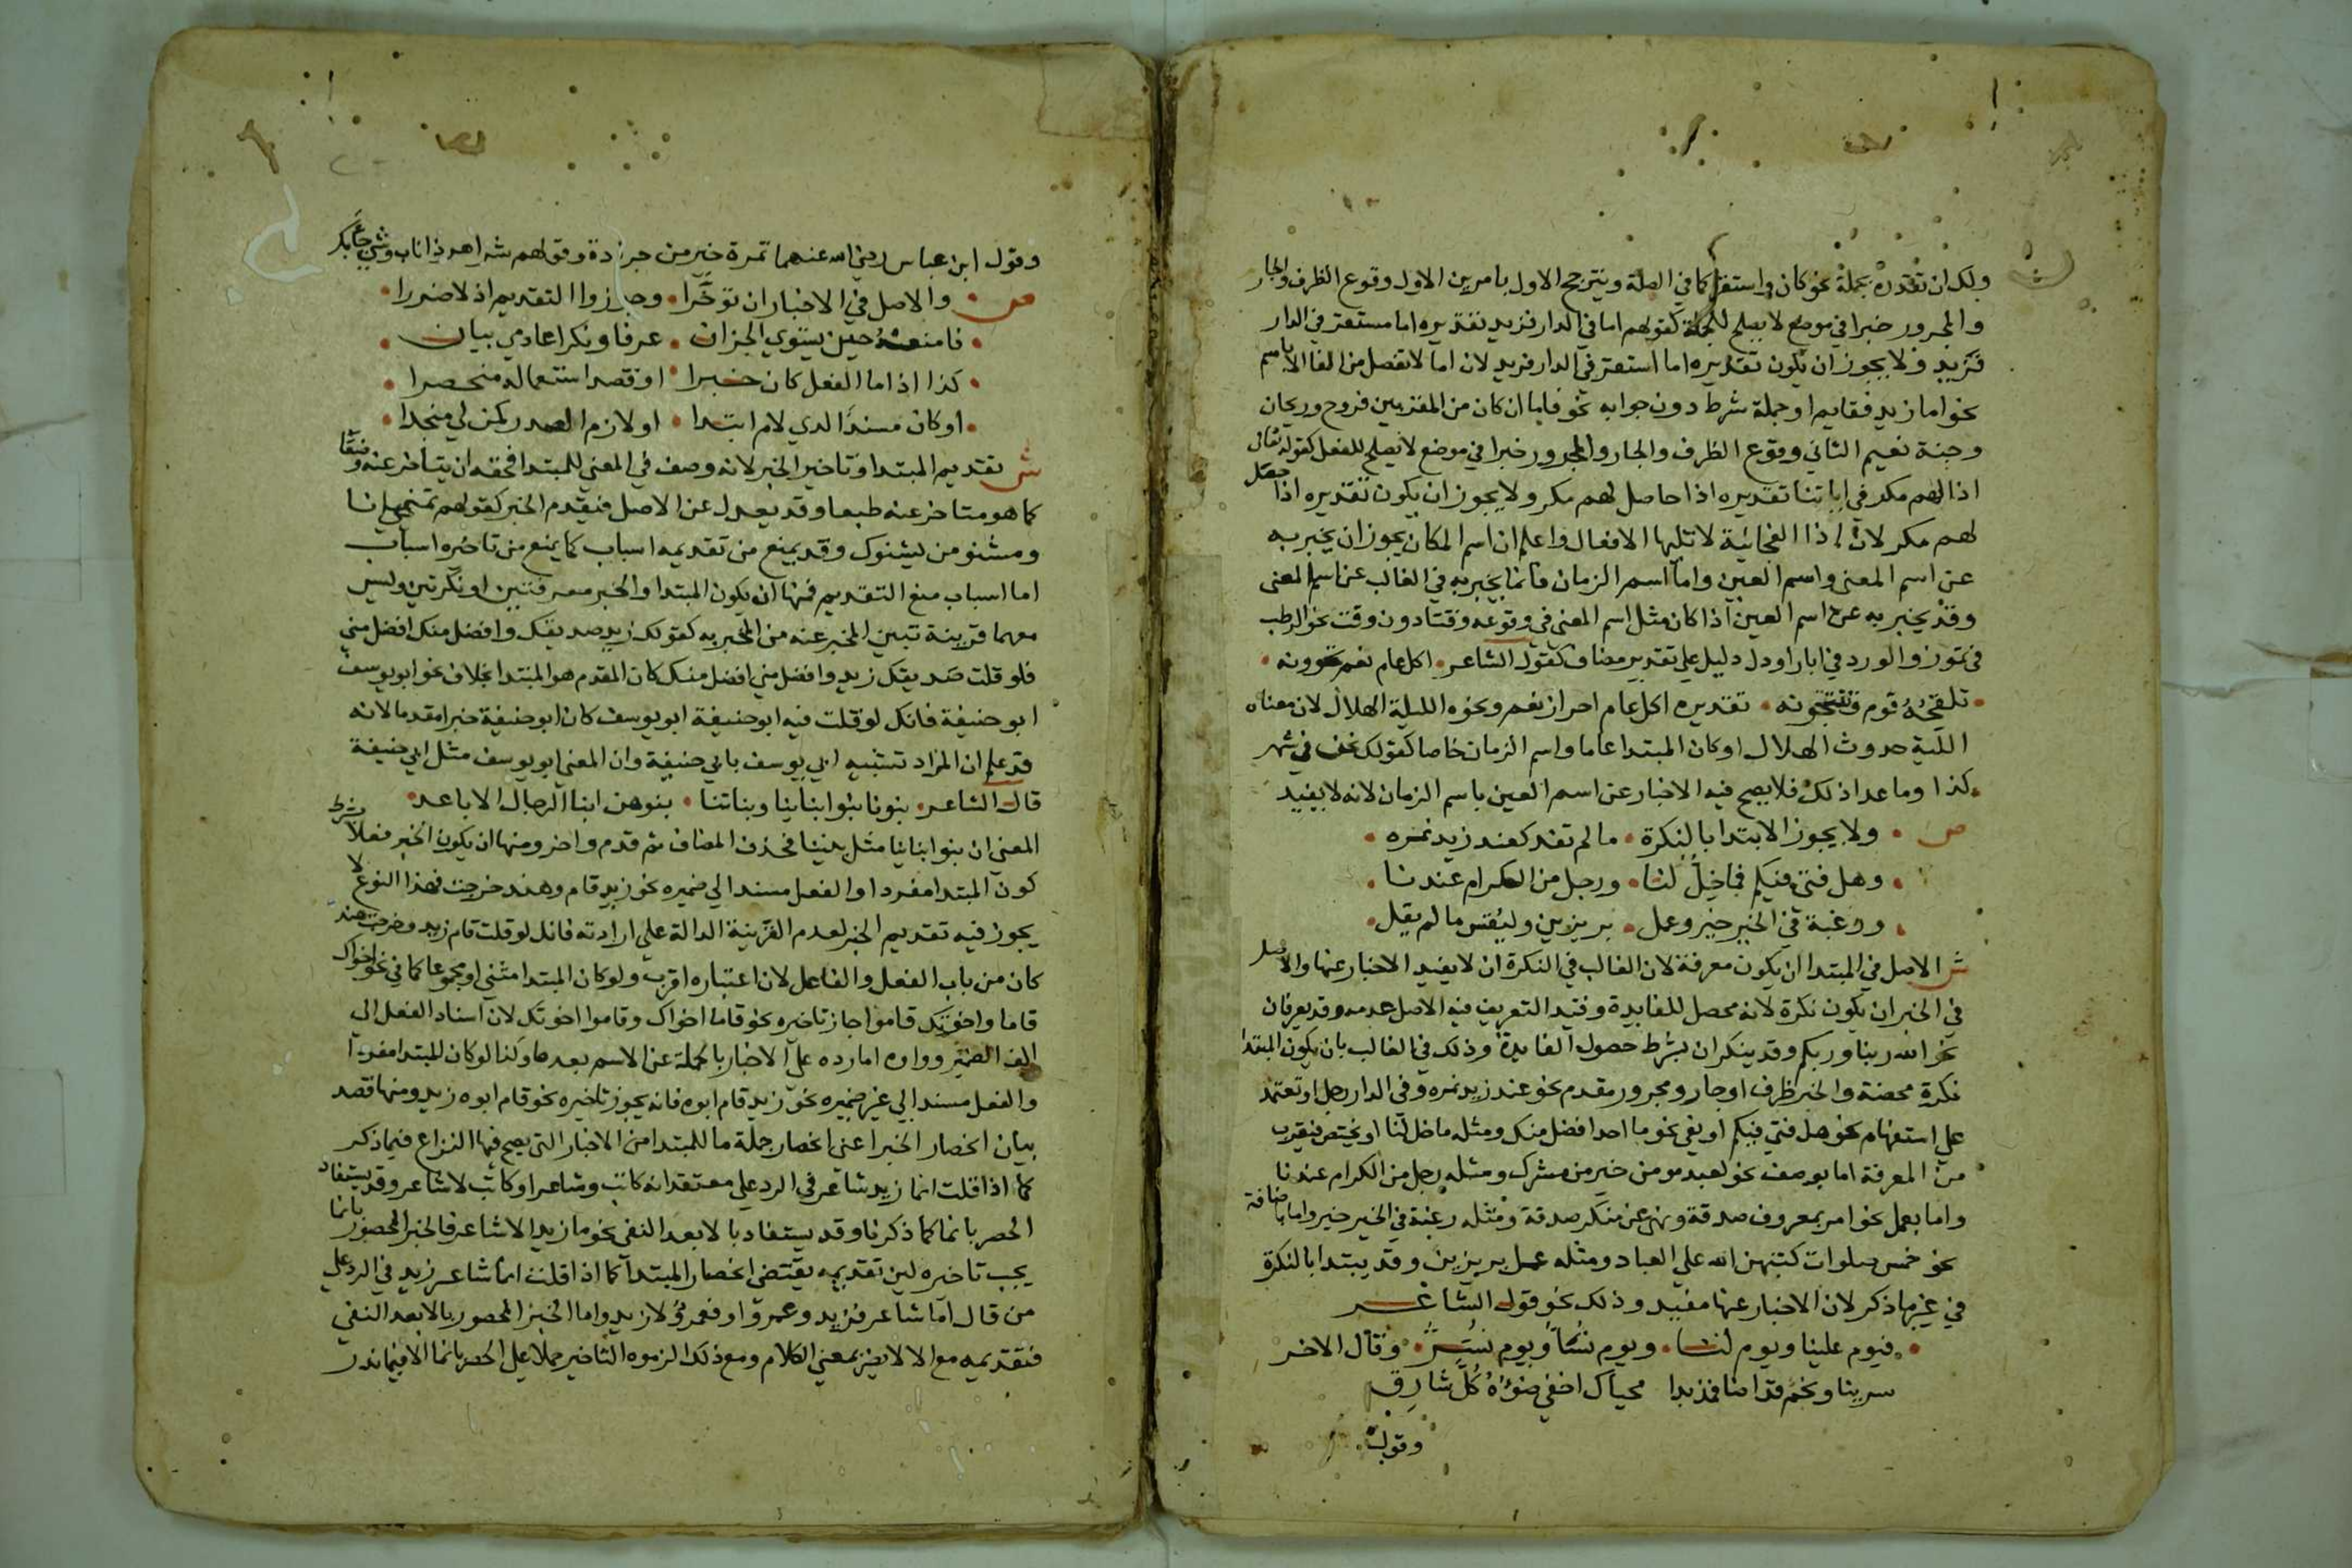 ولك ان تقدره بجملة نحو كان او استقر كما في الصلة ويترجح الاول بامرين الاول وقوع الظرف والجار
والمجرور خبرا في موضع لا يصلح للجملة كقولهم اما في الدار فزيد تقديره اما مستقر في الدار
فزيد ولا يجوز ان يكون تقديره اما استقر في الدار فزيد لان اما لا تفصل من الفا الا باسم
نحو اما زيد فقايم او جملة شرط دون جوابه نحو فاما ان كان من المقربين فروح وريحان
وجنة نعيم الثاني وقوع الظرف والجار والمجرور خبرا في موضع لا يصلح للفعل كقوله تعالى
اذا لهم مكر في اياتنا تقديره اذا حاصل لهم مكر ولا يجوز ان يكون تقديره اذا حصل
لهم مكر لان اذا الفجائية لا تليها الافعال واعلم ان اسم المكان يجوز ان يخبر به
عن اسم المعنى واسم العين واما اسم الزمان فانما يخبر به في الغالب عن اسم المعنى
وقد يخبر به عن اسم العين اذا كان مثل اسم المعنى في وقوعه وقتا دون وقت نحو الرطب
في تموز والورد في ايار او دل دليل على تقدير مضاف كقول الشاعر اكل عام نعم تحوونه
تلقحه قوم وتنتجونه تقديره اكل عام احراز نعم ونحوه الليلة الهلال لان معناه
الليلة حدوث الهلال او كان المبتدا عاما واسم الزمان خاصا كقولك نحن في شهر
كذا وما عدا ذلك فلا يصح فيه الاخبار عن اسم العين باسم الزمان لانه لا يفيد
ص ولا يجوز الابتدا بالنكرة ما لم تفد كعند زيد نمره
وهل فتى فيكم فما خل لنا ورجل من الكرام عندنا
ورغبة في الخير خير وعمل بر يزين وليقس ما لم يقل
ش الاصل في المبتدا ان يكون معرفة لان الغالب في النكرة ان لا يفيد الاخبار عنها والاصل
في الخبر ان يكون نكرة لانه محصل للفايدة وقيد التعريف فيه الاصل عدمه وقد يعرفان
نحو الله ربنا وربكم وقد ينكران بشرط حصول الفايدة وذلك في الغالب بان يكون المبتدا
نكرة محضة والخبر ظرف او جار ومجرور مقدم نحو عند زيد نمره وفي الدار رجل او تعتمد
على استفهام نحو هل فتى فيكم او نفي نحو ما احد افضل منك ومثله ما خل لنا او يختص فيقرب
من المعرفة اما بوصف نحو لعبد مومن خير من مشرك ومثله رجل من الكرام عندنا
واما بعمل نحو امر بمعروف صدقة ونهي عن منكر صدقة ومثله رغبة في الخير خير واما باضافة
نحو خمس صلوات كتبهن الله على العباد ومثله عمل بر يزين وقد يبتدا بالنكرة
في غير ما ذكر لان الاخبار عنها مفيد وذلك نحو قول الشاعر
فيوم علينا ويوم لنا ويوم نساء ويوم نسر وقال الاخر
سرينا ونجم قد اضا فمذ بدا محياك اخفى ضوءه كل شارق
وقول
وقول ابن عباس رضي الله عنهما تمرة خير من جرادة وقولهم شر اهر ذا ناب وشي جا بك
ص والاصل في الاخبار ان توخرا وجوزوا التقديم اذ لا ضررا
فامنعه حين يستوي الجزان عرفا ونكرا عادمي بيان
كذا اذا ما الفعل كان خبرا او قصد استعماله منحصرا
او كان مسندا لذي لام ابتدا او لازم الصدر كمن لي منجدا
ش تقديم المبتدا وتاخير الخبر لانه وصف في المعنى للمبتدا فحقه ان يتاخر عنه وضعا
كما هو متاخر عنه طبعا وقد يعدل عن الاصل فيقدم الخبر كقولهم تميمي انا
ومشنو من يشنوك وقد يمنع من تقديمه اسباب كما يمنع من تاخيره اسباب
اما اسباب منع التقديم فمنها ان يكون المبتدا والخبر معرفتين او نكرتين وليس
معهما قرينة تبين المخبر عنه من المخبر به كقولك زيد صديقك وافضل منك افضل مني
فلو قلت صديقك زيد وافضل مني افضل منك كان المقدم هو المبتدا بخلاف نحو ابو يوسف
ابو حنيفة فانك لو قلت فيه ابو حنيفة ابو يوسف كان ابو حنيفة خبرا مقدما لانه
قد علم ان المراد تشبيه ابي يوسف بابي حنيفة وان المعنى ابو يوسف مثل ابي حنيفة
قال الشاعر بنونا بنوا ابناينا وبناتنا بنوهن ابنا الرجال الاباعد
المعنى ان بنوا ابناينا مثل بنينا فحذف المضاف ثم قدم واخر ومنها ان يكون الخبر فعلا بشرط
كون المبتدا مفردا والفعل مسندا الى ضميره نحو زيد قام وهند خرجت فهذا النوع لا
يجوز فيه تقديم الخبر لعدم القرينة الدالة على ارادته فانك لو قلت قام زيد وخرجت هند
كان من باب الفعل والفاعل لان اعتباره اقرب ولو كان المبتدا مثنى او مجموعا كما في نحو اخواك
قاما واخوتك قاموا جاز تاخيره نحو قاما اخواك وقاموا اخوتك لان اسناد الفعل الى
الف الضمير وواوه امارة على الاخبار بالجملة عن الاسم بعدها وكذا لو كان المبتدا مفردا
والفعل مسندا الى غير ضميره نحو زيد قام ابوه فانه يجوز تاخيره نحو قام ابوه زيد ومنها قصد
بيان انحصار الخبر اعني انحصار جملة ما للمبتدا من الاخبار التي يصح فيها النزاع فيما ذكر
كما اذا قلت انما زيد شاعر في الرد على معتقد انه كاتب وشاعر او كاتب لا شاعر وقد يستفاد
الحصر بانما كما ذكرنا وقد يستفاد بالا بعد النفي نحو ما زيد الا شاعر فالخبر المحصور بانما
يجب تاخيره لين تقديمه يقتضي انحصار المبتدا كما اذا قلت انما شاعر زيد في الرد على
من قال اما شاعر فزيد وعمرو او فعمرو لا زيد واما الخبر المحصور بالا بعد النفي
فتقديمه مع الا لا يضر بمعنى الكلام ومع ذلك الزموه التاخير حملا على الحصر بانما الا فيما ندر